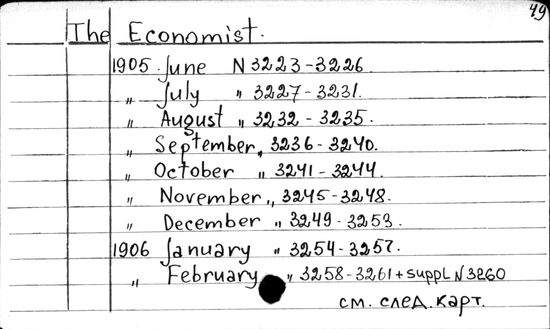 49
The Economist.
1905 June N 3223-3226.
" July " 3227-3231.
" August " 3232-3235.
" September " 3236-3240.
" October " 3241-3244.
" November " 3245-3248.
" December " 3249-3253.
1906 January " 3254-3257.
" February " 3258-3261+suppl N 3260
см. след. карт.